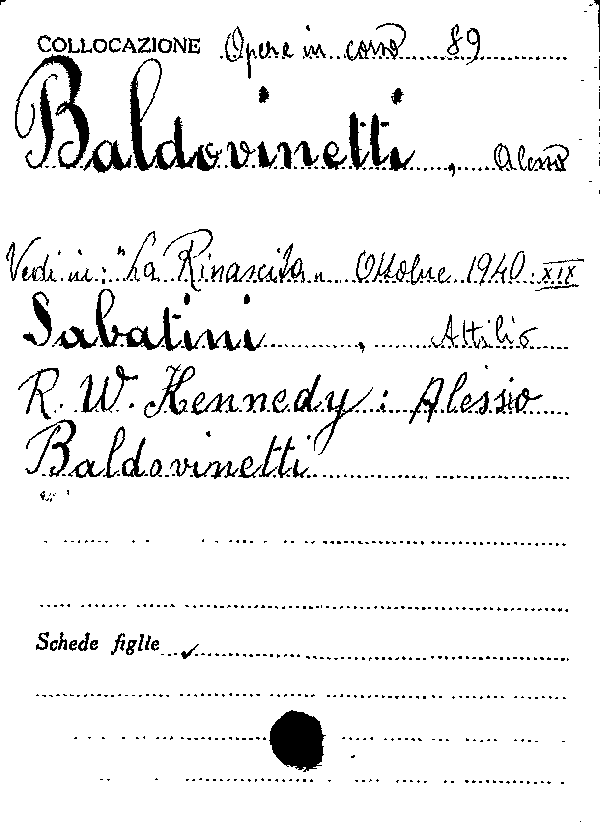 COLLOCAZIONE Opere in corso 89
Baldovinetti, Alesso
Vedi in: "La Rinascita„ Ottobre 1940 XIX
Sabatini, Attilio
R. W. Kennedy: Alessio
Baldovinetti
Schede figlie ✓